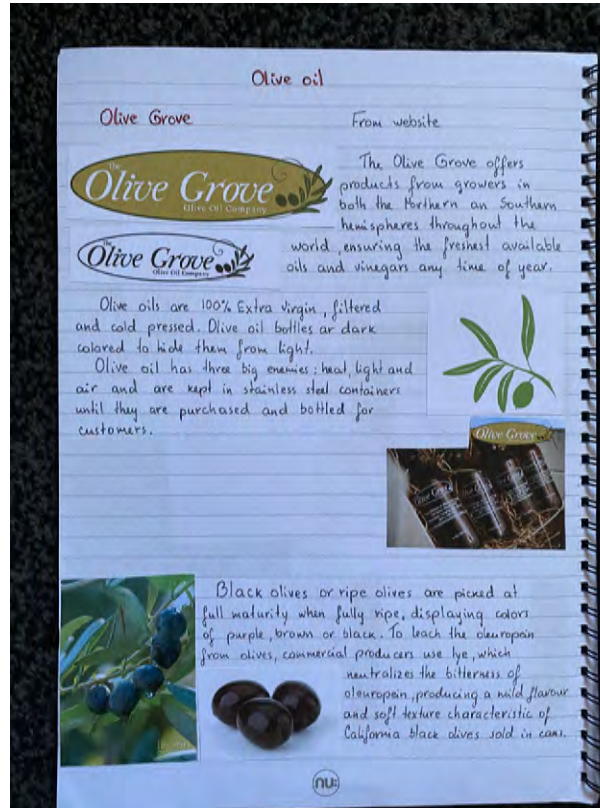 Olive oil
Olive Grove
From website
The
Olive Grove
Olive Oil Company
The
Olive Grove
Olive Oil Company
The Olive Grove offers
products from growers in
both the Northern an Southern
hemispheres throughout the
world, ensuring the freshest available
oils and vinegars any time of year.
Olive oils are 100% Extra Virgin, filtered
and cold pressed. Olive oil bottles ar dark
colored to hide them from light.
Olive oil has three big enemies: heat, light and
air and are kept in stainless steel containers
until they are purchased and bottled for
customers.
Olive Grove
Black olives or ripe olives are picked at
full maturity when fully ripe, displaying colors
of purple, brown or black. To leach the oleuropein
from olives, commercial producers use lye, which
neutralizes the bitterness of
oleuropein, producing a mild flavour
and soft texture characteristic of
California black olives sold in cans.
nu: